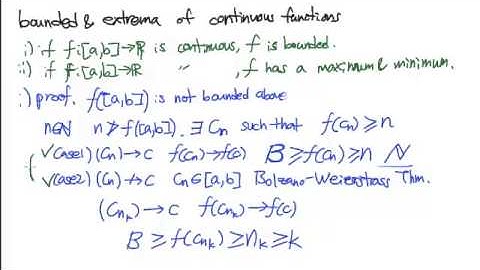 bounded & extrema of continuous functions
i) if f:[a,b]→ℝ is continuous, f is bounded.
ii) if f:[a,b]→ℝ 〃 , f has a maximum & minimum.
i) proof. f([a,b]) is not bounded above
n∈ℕ n ≱ f([a,b]). ∃ Cn such that f(Cn) ≥ n
√case1) (Cn)→c f(Cn)→f(c) B ≥ f(Cn) ≥ n
√case2) (Cn)↛c Cn∈[a,b] Bolzano-Weierstrass Thm.
(Cnk)→c f(Cnk)→f(c)
B ≥ f(Cnk) ≥ nk ≥ k